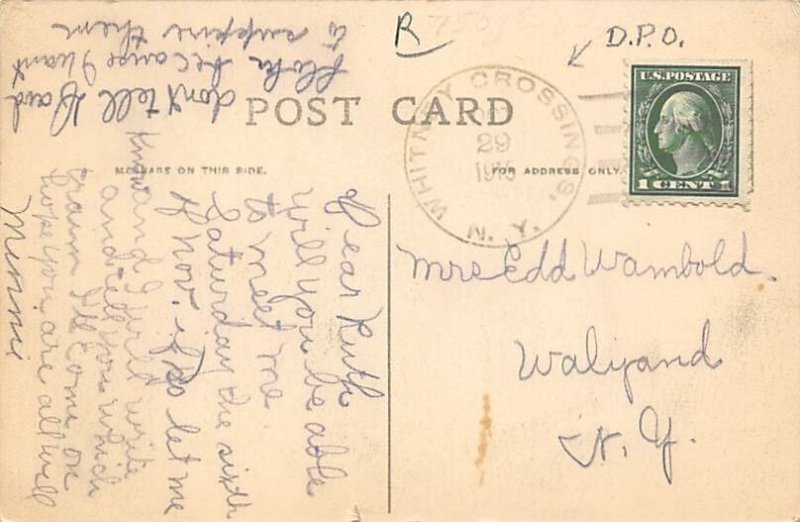 R
D.P.O.
U.S. POSTAGE
1 CENT 1
WHITNEY CROSSINGS,
29
N. Y.
POST CARD
MESSAGE ON THIS SIDE.
FOR ADDRESS ONLY.
Mrs Edd Wambold.
Walyand
N. Y.
Dear Ruth
Will you be able
to meet me
Saturday the sixth
of nov. if so let me
know and I will write
and tell you which
train Ill come on
hope you are all well
Minnie
don't tell Dad
because I want
to surprise them